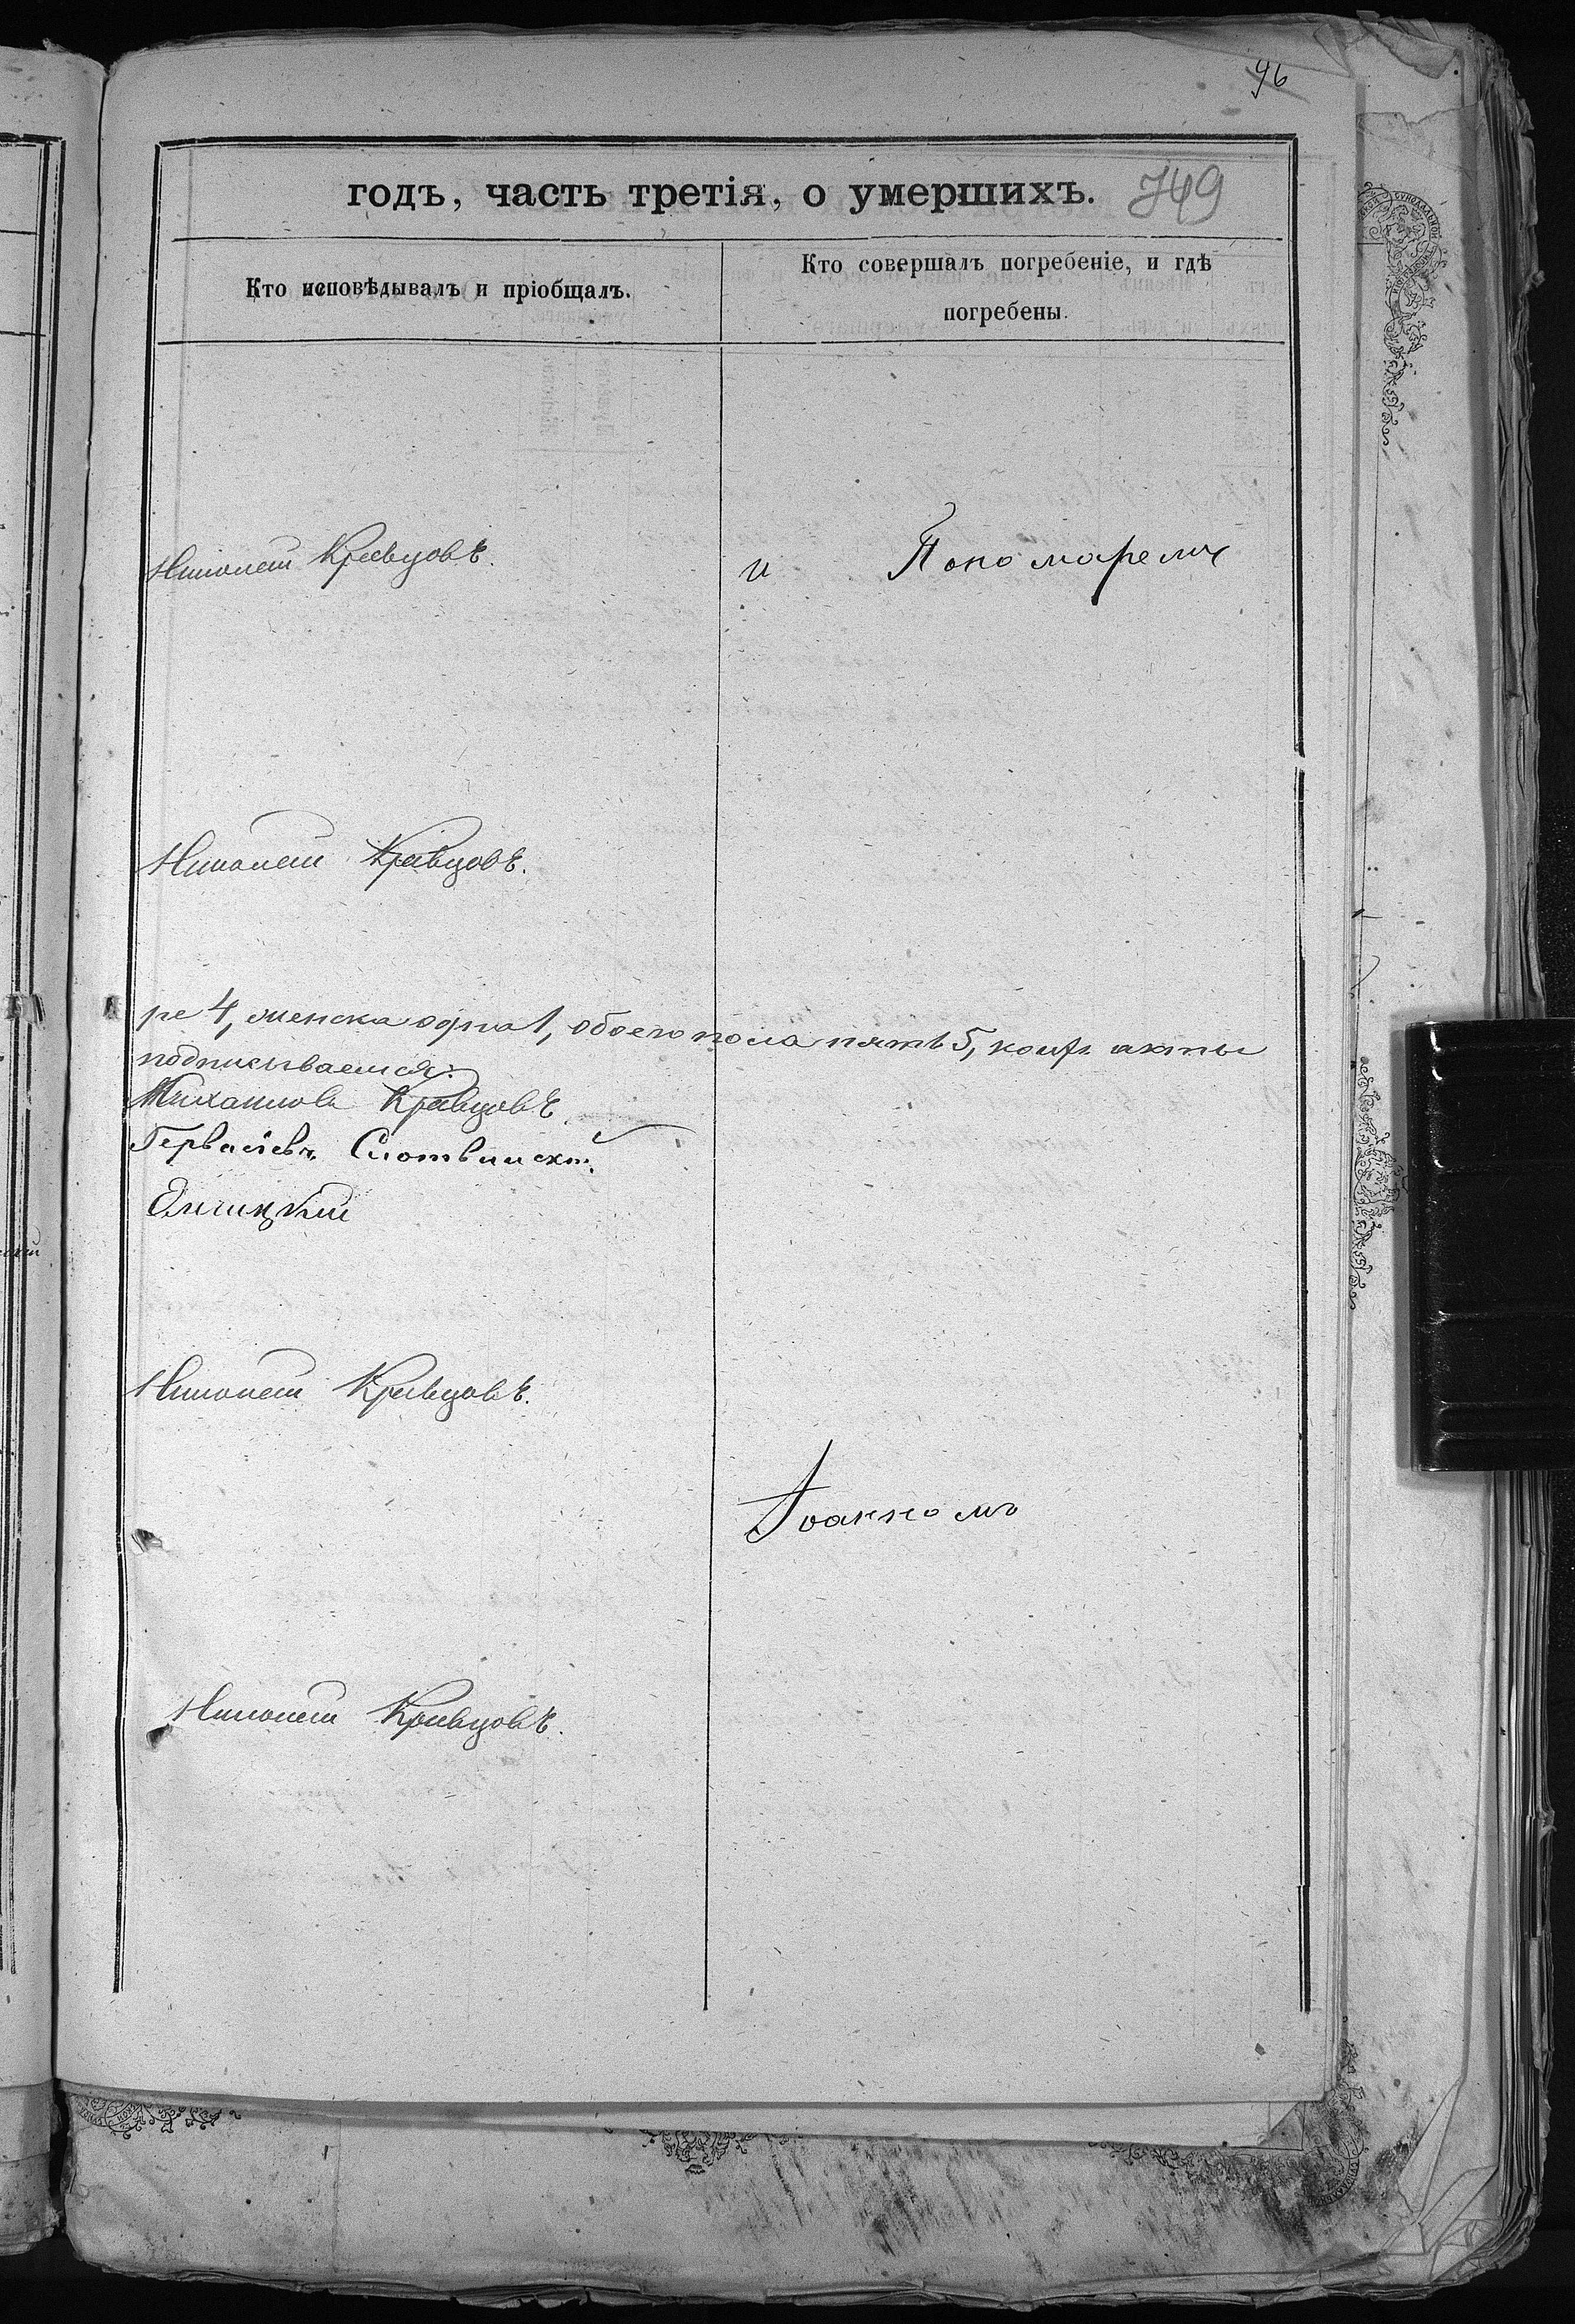 96
годъ, часть третія, о умершихъ. 749
Кто исповѣдывалъ и пріобщалъ.
Кто совершалъ погребеніе, и гдѣ
погребены.
Николай Кравцовъ.
и Пономаремъ
Николай Кравцовъ.
ре 4, женска одна 1, обоего пола пять 5, акты
подписываемся:
Михаиловъ Кравцовъ
Гервасіевъ Слотвинскій
Николай Кравцовъ.
Іоанномъ
Николай Кравцовъ.